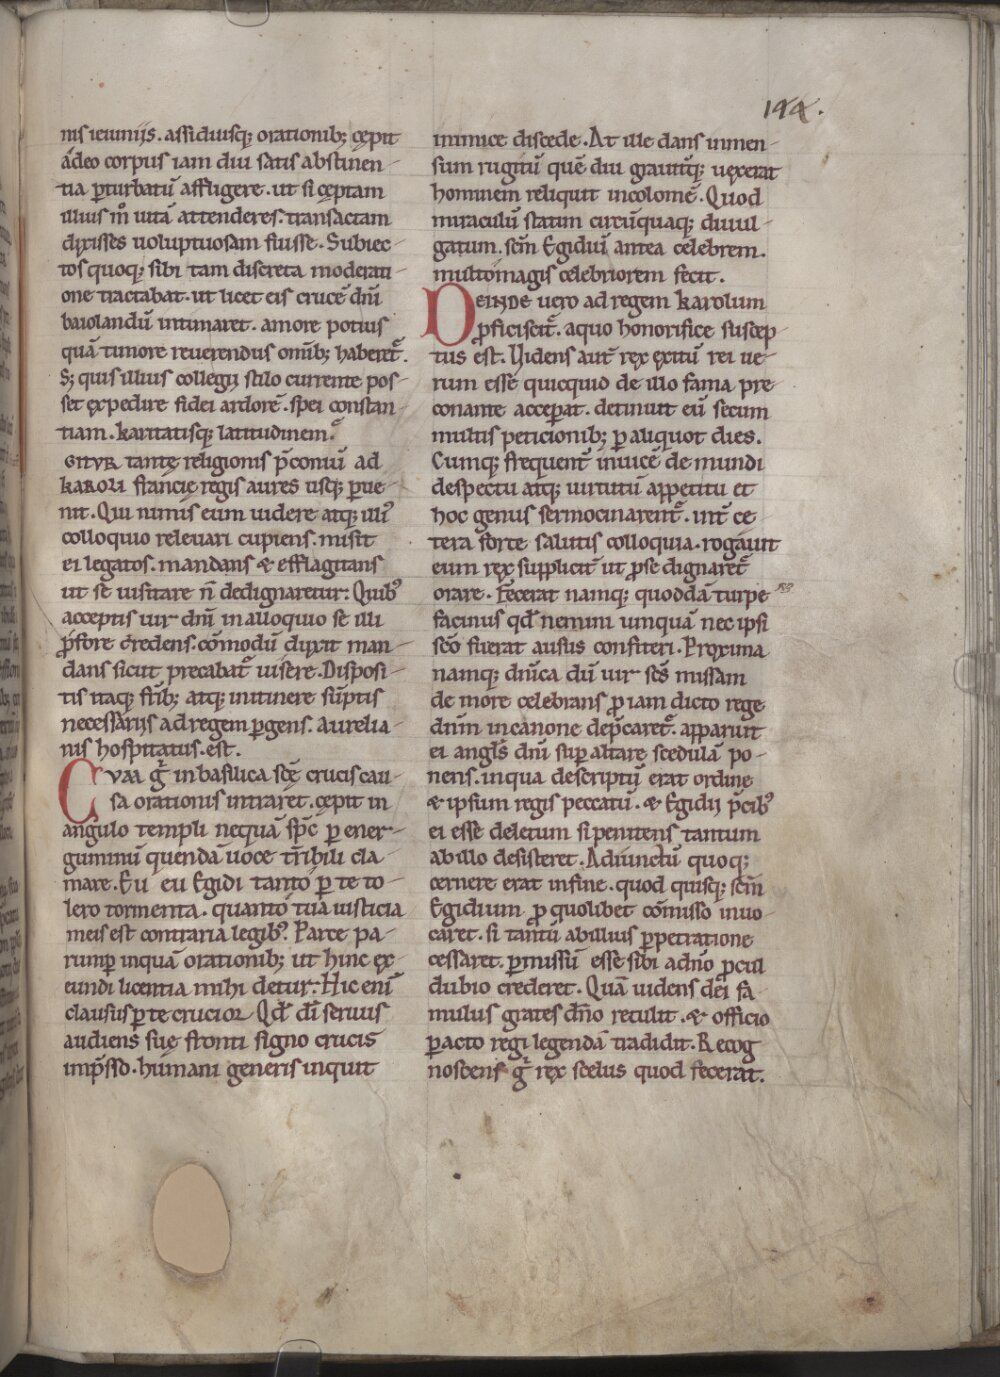 144.
nis ieiuniis. assiduisq; orationib; cępit
adeo corpus iam diu satis abstinen-
tia ꝑturbatū affligere. ut si cęptam
illius m̊ uitā attenderes. transactam
dixisses uoluptuosam fuisse. Subiec-
tos quoq; sibi tam discreta moderati-
one tractabat. ut licet eis crucē dn̄i
baiolandū intimaret. amore potius
quā timore reuerendus omīb; haberet᷑.
S; quis illius collegii stilo currente pos-
set expedire fidei ardorē. spei constan-
tiam. karitatisq; latitudinem.
GITVR tantę religionis p̄coniū ad
KAROLI francię regis aures usq; ꝑue-
nit. Qui nimis eum uidere atq; illi᷒
colloquio releuari cupiens. misit
ei legatos. mandans & efflagitans
ut se uisitare n̄ dedignaretur. Quib᷒
acceptis uir dn̄i in alloquio se illi
ꝓfore credens. cōmodū duxit man-
dans sicut precabat᷑ uisere. Disposi-
tis itaq; fr̄ib; atq; initinere sūptis
necessariis ad regem ꝑgens. aurelia-
nis hospitatus. est.
CVM ḡ in basilica sc̄ę crucis cau-
sa orationis intraret. cępit in
angulo templi nequā sp̄c ꝑ ener-
guminū quendā uoce tr̄ibili cla-
mare. Eu eu Egidi tanto ꝑ te to-
lero tormenta. quanto tua iusticia
meis est contraria legib᷒. Parce pa-
rumꝑ inquā orationib; ut hinc ex-
eundi licentia mihi detur. Hic enī
clausus ꝑ te crucior. Qd̄ dī seruus
audiens suę fronti signo crucis
imp̄sso. humani generis inquit
inimice discede. At ille dans inmen-
sum rugitū quē diu grauit᷑q; uexerat
hominem reliquit incolomē. Quod
miraculū statim circūquaq; diuul-
gatum. sc̄m Egidiū antea celebrem.
multomagis celebriorem fecit.
DEINDE uero ad regem karolum
ꝓficiscit᷑. aquo honorifice suscep-
tus est. Uidens aut̄ rex exitū rei ue-
rum esse quicquid de illo fama pre-
conante acceperat. detinuit eū secum
multis peticionib; ꝑ aliquot dies.
Cumq; frequent̄ inuicē de mundi
despectu atq; uirtutū appetitu et
hoc genus sermocinarent᷑. int̄ ce-
tera forte salutis colloquia. rogauit
eum rex supplicit̄ ut ꝓse dignaret᷑
orare. Fecerat namq; quoddā turpe
facinus qd̄ nemini umquā nec ipsi
sc̄o fuerat ausus confiteri. Proxima
namq; dn̄ica dū uir sc̄s missam
de more celebrans ꝓ iam dicto rege
dn̄m in canone dep̄caret᷑. apparuit
ei angl̄s dn̄i suꝑ altare scedulā po-
nens. inqua descriptū erat ordine
& ipsum regis peccatū. & Egidii p̄cib᷒
ei esse deletum si penitens tantum
ab illo desisteret. Adiunctū quoq;
cernere erat in fine. quod quisq; sc̄m
Egidium ꝓ quolibet cōmisso inuo-
caret. si tantū ab illius ꝑpetratione
cessaret. ꝑmissū esse sibi adn̄o ꝓcul
dubio crederet. Quā uidens dei fa-
mulus grates dn̄o retulit. & officio
ꝑacto regi legendā tradidit. Recog-
noscens ḡ rex scelus quod fecerat.